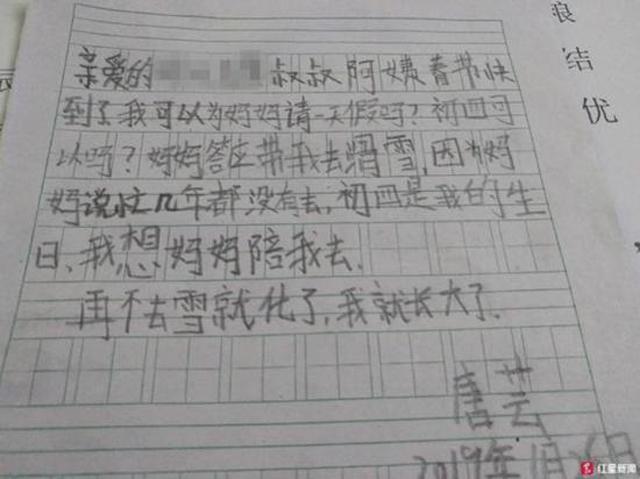 亲爱的 叔叔阿姨春节快
到了我可以为妈妈请一天假吗?初四可
以吗?妈妈答应带我去滑雪,因为妈
妈说忙几年都没有去,初四是我的生
日、我想妈妈陪我去.
再不去雪就化了,我就长大了.
唐芸
2019年1月26日
浪
结
优
红星新闻